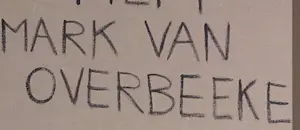 MARK VAN
OVERBEEKE